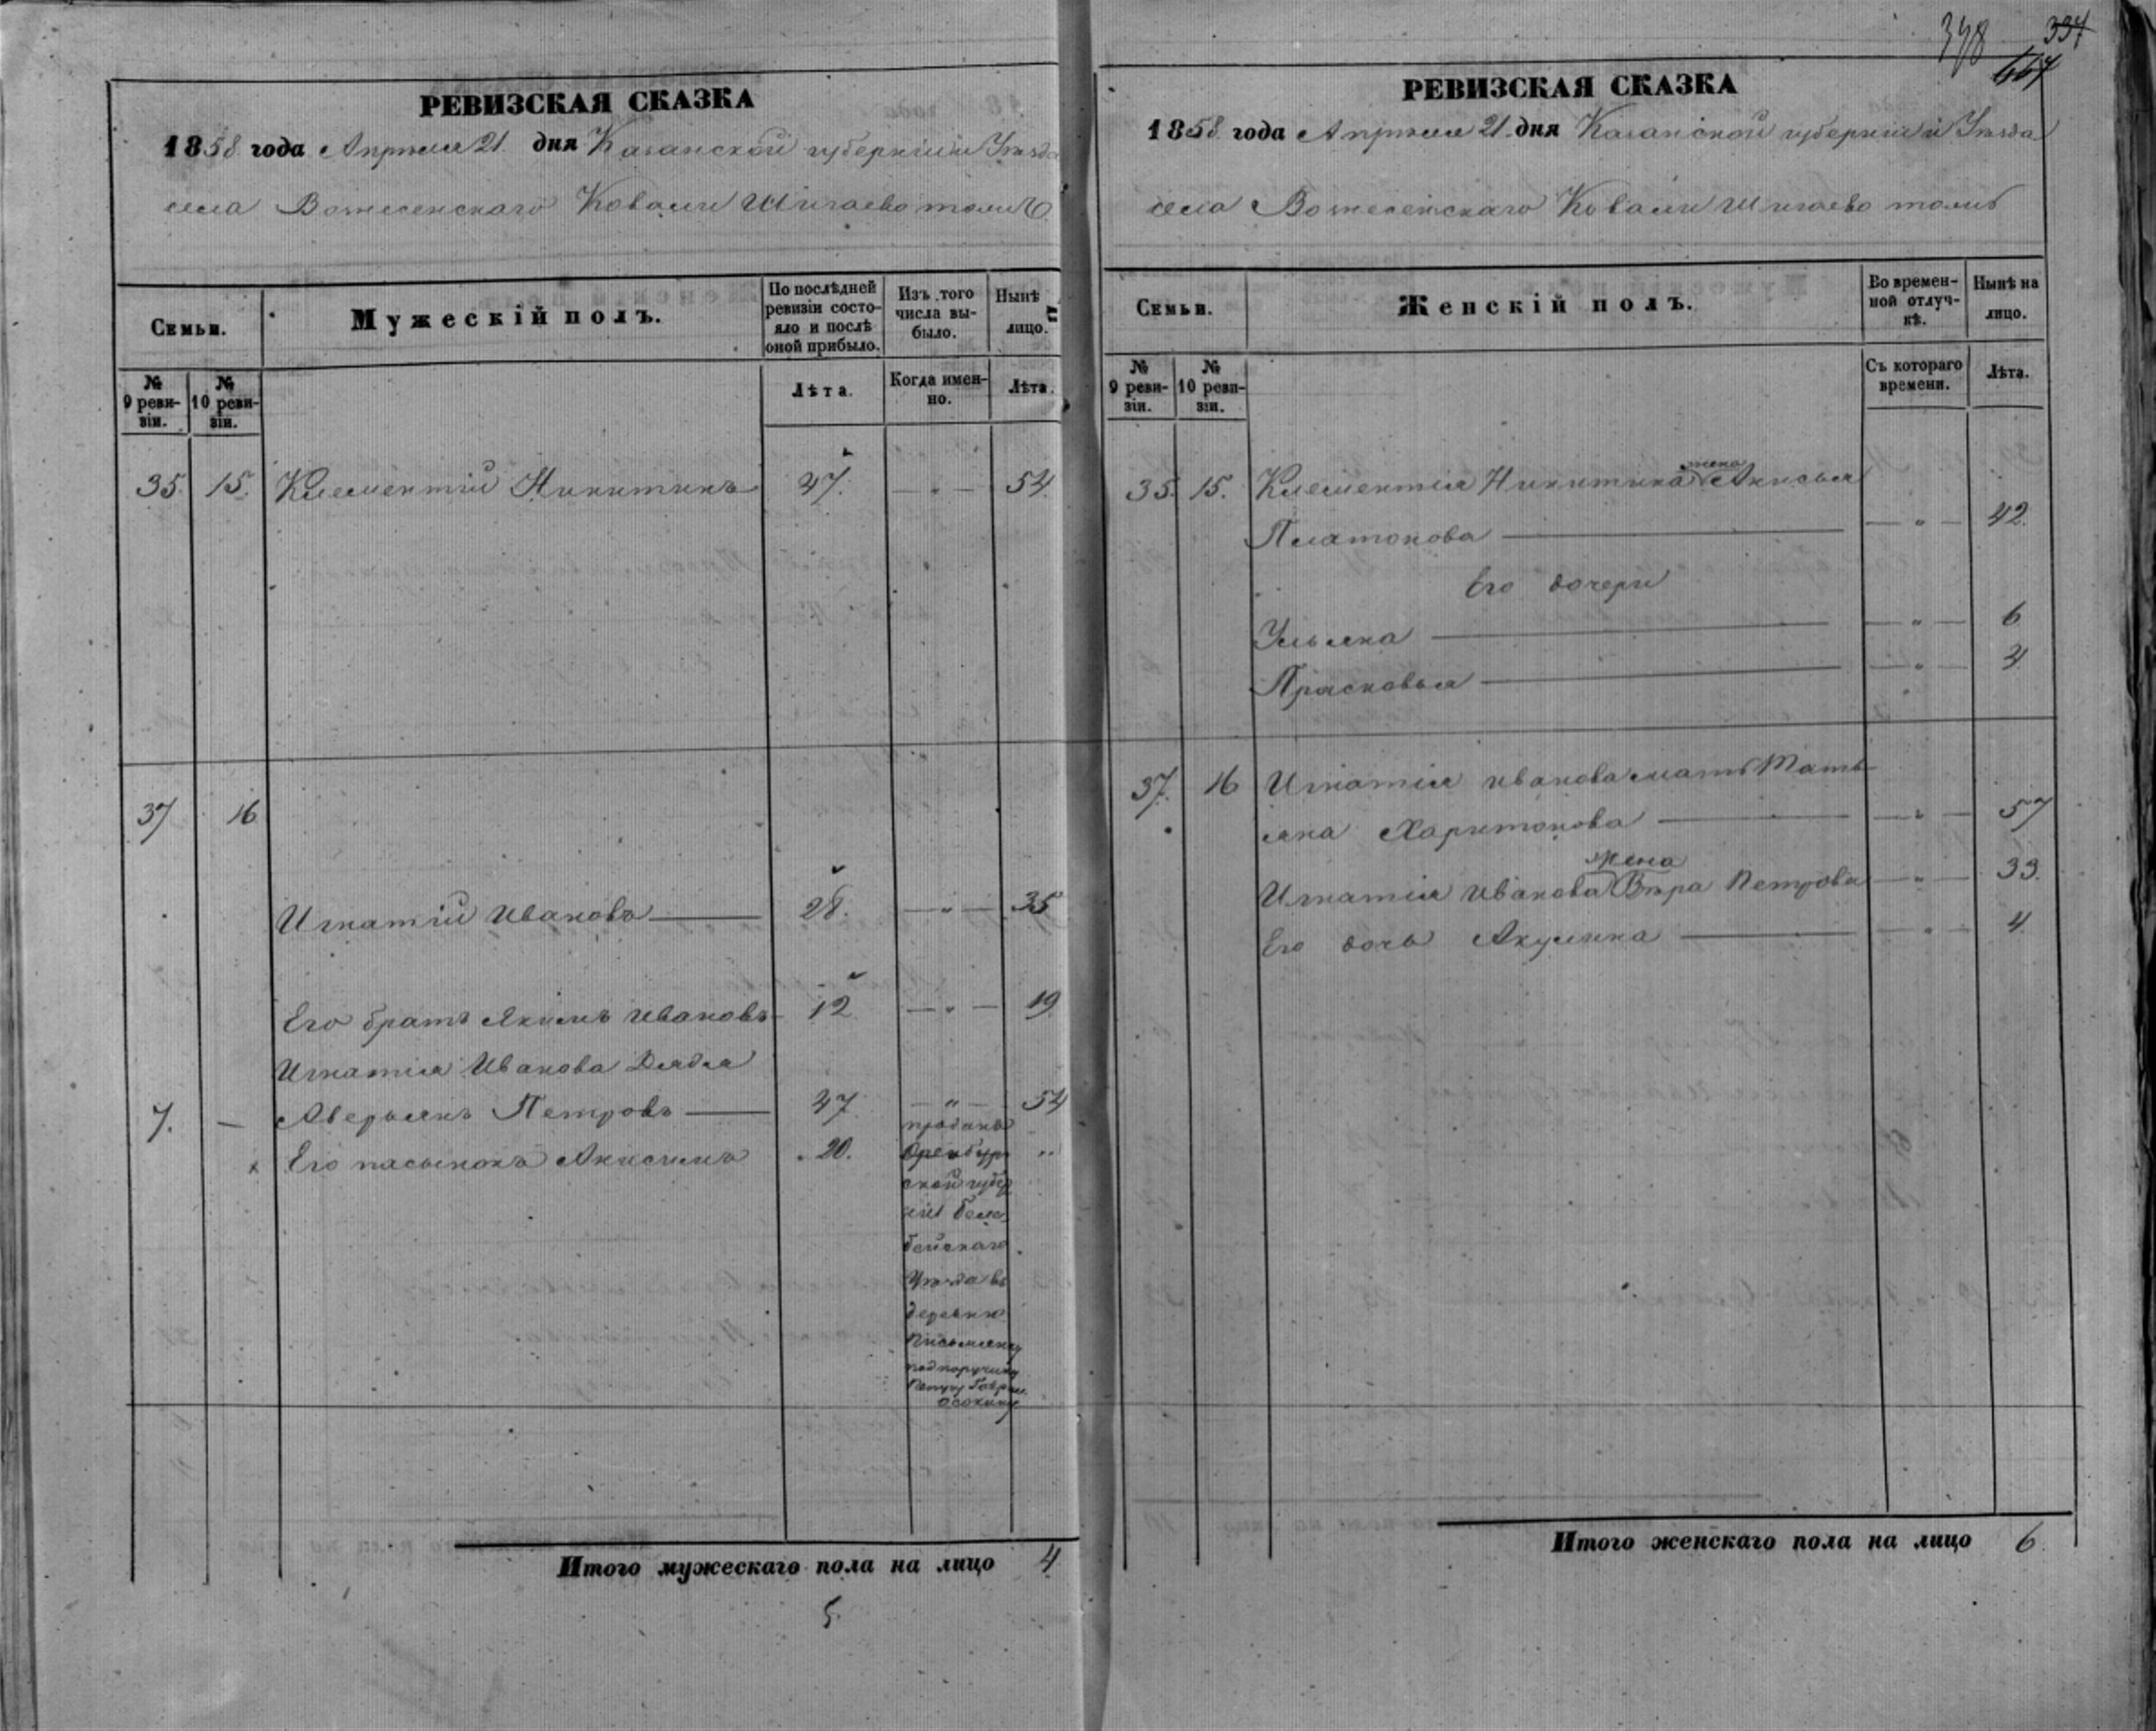 РЕВИЗСКАЯ СКАЗКА
1858 года Апрѣля 21 дня Казанской губерніи и Уѣзда
села Вознесенскаго Ковали Шигаево тожъ
Семьи.
Мужескій полъ.
По послѣдней ревизіи состояло и послѣ оной прибыло.
Изъ того числа выбыло.
Нынѣ на лицо.
№ 9 ревизіи.
№ 10 ревизіи.
Лѣта.
Когда именно.
Лѣта.
35. 15. Клементій Никитинъ 47. — " — 54.
37 16
Игнатій Ивановъ — 28. — " — 35
Его братъ Якимъ Ивановъ 12 — " — 19
Игнатія Иванова Дядя
7. — Аверьянъ Петровъ — 47 — " — 54
Его пасынокъ Анисимъ 20. "
проданъ
Оренбург
ской губер
ніи Беле
бейскаго
Уѣзда въ
деревню
подпоручику
Петру Гаврил.
Осокину
Итого мужескаго пола на лицо 4
5.
348 337
667
РЕВИЗСКАЯ СКАЗКА
1858 года Апрѣля 21 дня Казанской губерніи и Уѣзда
села Вознесенскаго Ковали Шигаево тожъ
Семьи.
Женскій полъ.
Во временной отлучкѣ.
Нынѣ на лицо.
№ 9 ревизіи.
№ 10 ревизіи.
Съ котораго времени.
Лѣта.
35. 15. Клементія Никитина жена Анисья
Платонова — — " — 42.
Его дочери
Ульяна — — " — 6
Прасковья — — " — 3
37. 16 Игнатія Иванова мать Тать
яна Харитонова — — " — 57
Игнатія Иванова жена Вѣра Петрова — " — 33.
Его дочь Акулина — — " — 4
Итого женскаго пола на лицо 6.